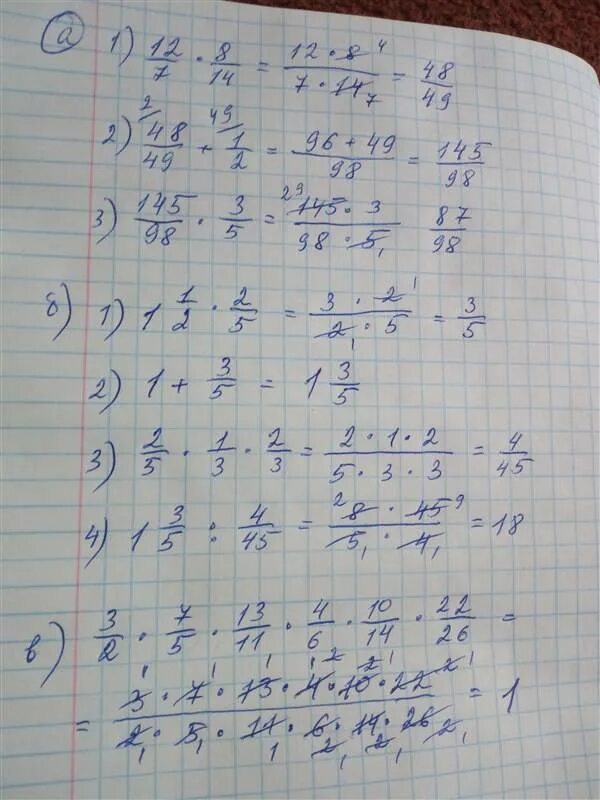 а) 1) 12/7 · 8/14 = 12 · 8 4 / 7 · 14 7 = 48/49
2) 2/ 48/49 + 49/ 1/2 = 96 + 49 / 98 = 145/98
3) 145/98 · 3/5 = 29 145 · 3 / 98 · 5 1 87/98
б) 1) 1 1/2 · 2/5 = 3 · 2 1 / 2 1 · 5 = 3/5
2) 1 + 3/5 = 1 3/5
3) 2/5 · 1/3 · 2/3 = 2 · 1 · 2 / 5 · 3 · 3 = 4/45
4) 1 3/5 : 4/45 = 2 8 · 45 9 / 5 1 · 4 1 = 18
в) 3/2 · 7/5 · 13/11 · 4/6 · 10/14 · 22/26 =
= 3 · 7 · 13 · 4 · 10 · 22 / 2 · 5 · 11 · 6 · 14 · 26 = 1